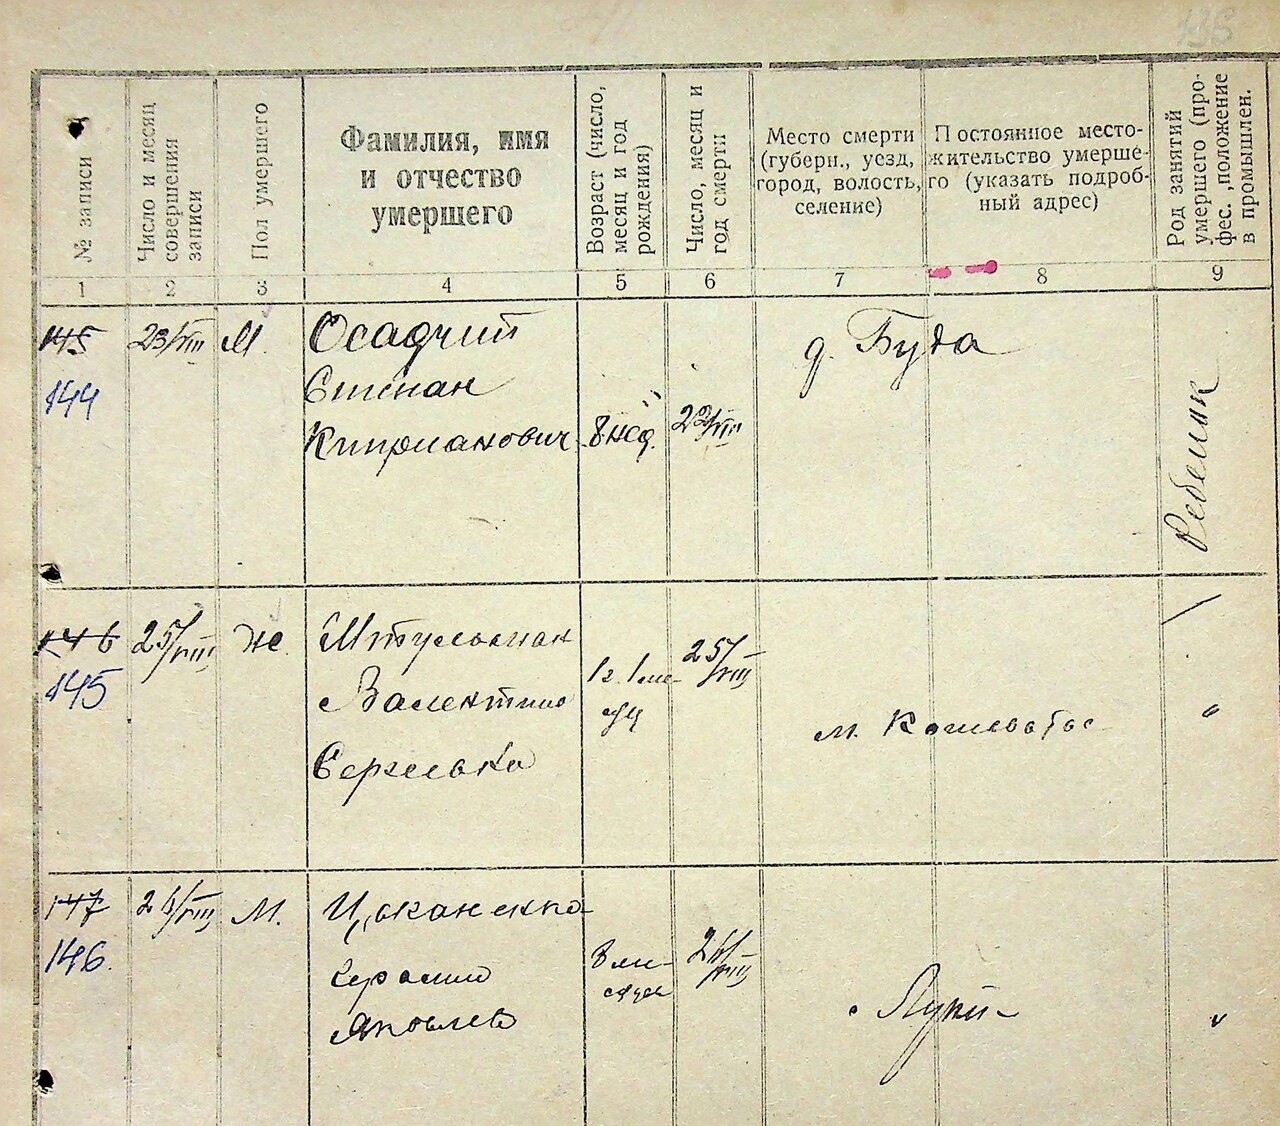 136
№ записи
Число и месяц
совершения
записи
Пол умершего
Фамилия, имя
и отчество
умершего
Возраст (число,
месяц и год
рождения)
Число, месяц и
год смерти
Место смерти
(губерн., уезд,
город, волость,
селение)
Постоянное место-
жительство умерше-
го (указать подроб-
ный адрес)
Род занятий
умершего (про-
фес. ,положение
в промышлен.
1 2 3 4 5 6 7 8 9
145 23/VIII М. Осадчий
144 Степан
Киприанович 8 нед. 22/VIII
д. Буда
Ребенок
146 25/VIII Же.
145 Валентина
Сергеевна
1 г. 1 ме-
25/VIII
м. Кошеватое
"
147 26/VIII М. Цыканенко
146. Герасим
Яковлев
8 ме-
сяцев
26/VIII
Луки
"